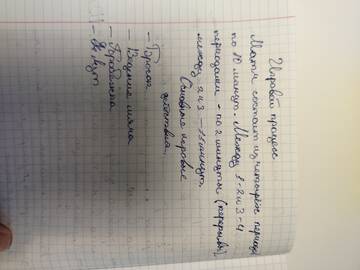 Игровой процесс
Матч состоит из четырёх период
по 10 минут. Между 1-2 и 3-4
периодами - по 2 минуты (перерывы)
между 2 и 3 — 15 минут.
Основные игровые
действия.
— Бросок
— Ведение мяча
— Пробежка